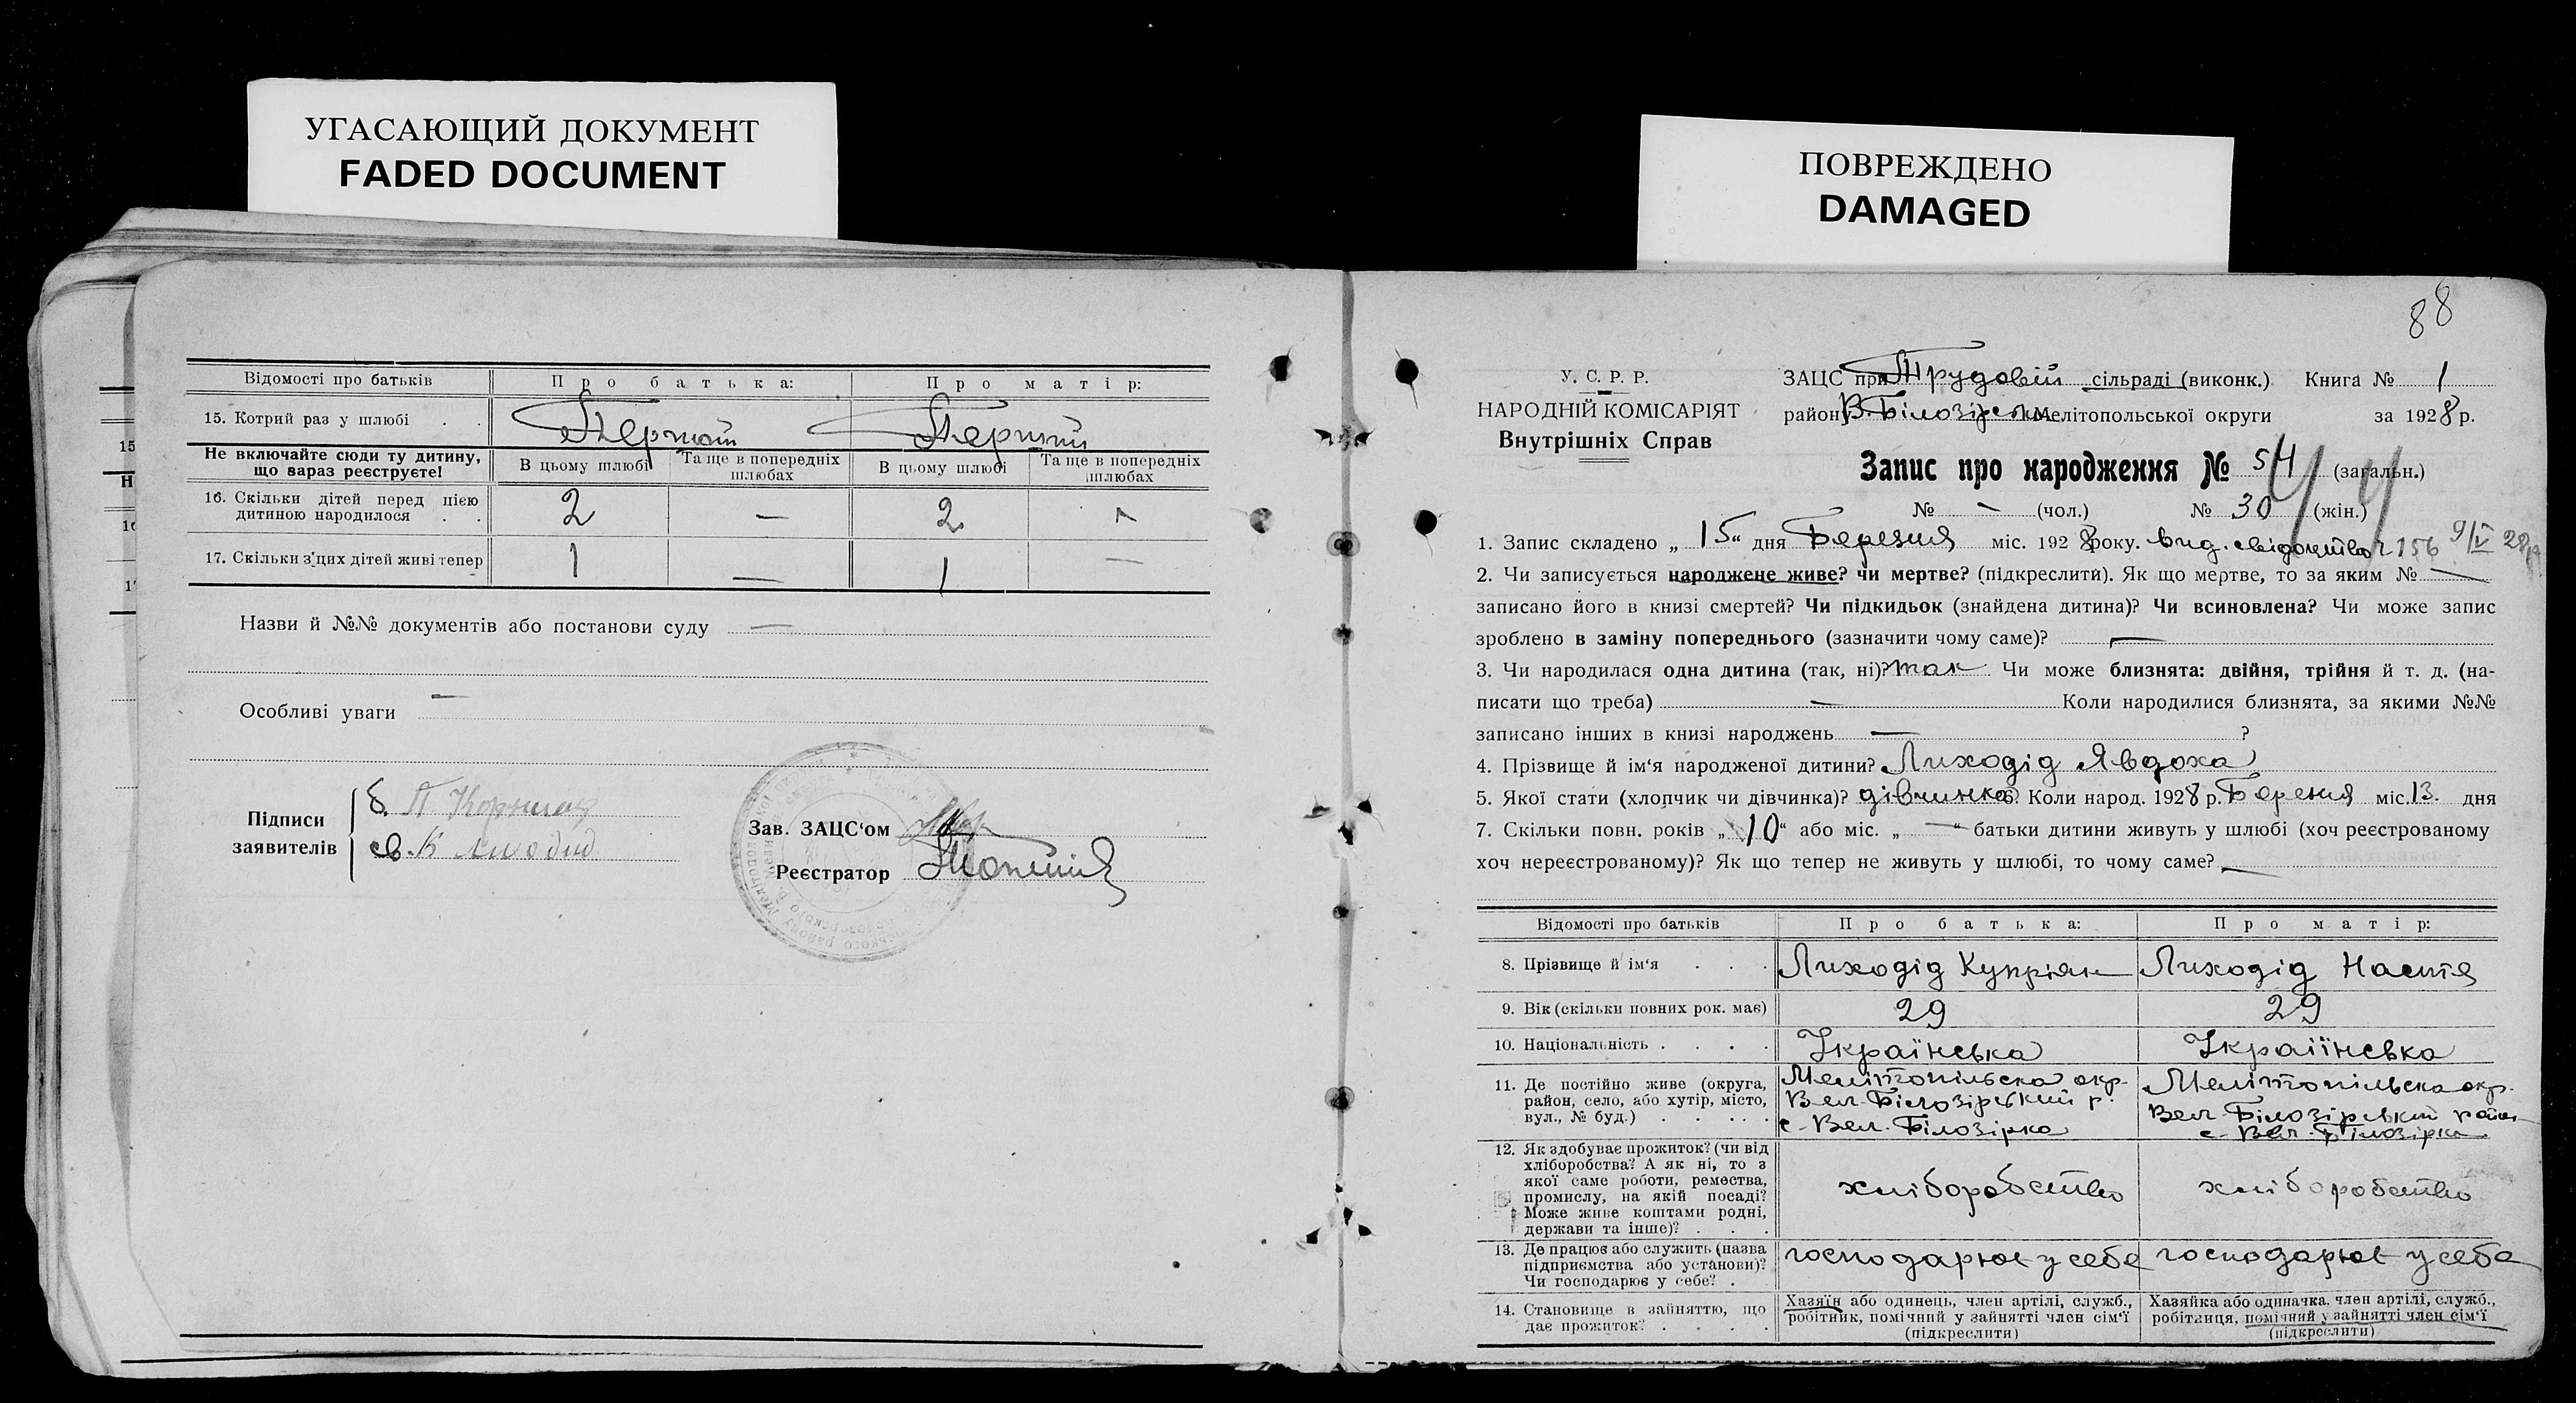 УГАСАЮЩИЙ ДОКУМЕНТ
FADED DOCUMENT
Відомості про батьків Про батька: Про матір:
15. Котрий раз у шлюбі Перший Перший
Не включайте сюди ту дитину, що вараз реєструєте!
В цьому шлюбі Та ще в попередніх шлюбах В цьому шлюбі Та ще в попередніх шлюбах
16. Скільки дітей перед цією
дитиною народилося 2 — 2
17. Скільки з'цих дітей живі тепер 1 — 1 —
Назви й №№ документів або постанови суду —
Особливі уваги —
Підписи
заявителів
б. П.
св. К
Зав. ЗАЦС'ом
Реєстратор
ПОВРЕЖДЕНО
DAMAGED
88
У. С. Р. Р.
НАРОДНІЙ КОМІСАРІЯТ
Внутрішніх Справ
ЗАЦС при Трудовій сільраді (виконк.) Книга № 1
району В. Білозірськ Мелітопольської округи за 1928 р.
Запис про народження № 54 (загальн.)
№ — (чол.) № 30 (жін.)
1. Запис складено „15“ дня Березня міс. 1928 року. вид. свідоцтво 156 9/IV 28
2. Чи записується народжене живе? чи мертве? (підкреслити). Як що мертве, то за яким № —
записано його в книзі смертей? Чи підкидьок (знайдена дитина)? Чи всиновлена? Чи може запис
зроблено в заміну попереднього (зазначити чому саме)? —
3. Чи народилася одна дитина (так, ні)? так Чи може близнята: двійня, трійня й т. д. (на-
писати що треба) — Коли народилися близнята, за якими №№
записано інших в книзі народжень — ?
4. Прізвище й ім'я народженої дитини? Лиходід Явдоха
5. Якої стати (хлопчик чи дівчинка)? дівчинка 6. Коли народ. 1928 р. Березня міс. 13. дня
7. Скільки повн. років „10“ або міс. „—“ батьки дитини живуть у шлюбі (хоч реєстрованому
хоч нереєстрованому)? Як що тепер не живуть у шлюбі, то чому саме? —
Відомості про батьків Про батька: Про матір:
8. Прізвище й ім'я Лиходід Купріян Лиходід Настя
9. Вік (скільки повних рок. має) 29 29
10. Національність Українська Українська
11. Де постійно живе (округа,
район, село, або хутір, місто,
вул., № буд.)
Мелітопільська окр.
Вел. Білозірський р.
с. Вел. Білозірка
Мелітопільська окр.
Вел. Білозірський район
с. Вел. Білозірка
12. Як здобуває прожиток? (чи від
хліборобства? А як ні, то з
якої саме роботи, ремества,
промислу, на якій посаді?
Може живе коштами родні,
держави та інше)?
хліборобство хліборобство
13. Де працює або служить (назва
підприємства або установи)?
Чи господарює у себе?
господарює у себе господарює у себе
14. Становище в зайняттю, що
дає прожиток?
Хазяїн або одинець, член артілі, служб.,
робітник, помічний у зайнятті член сім'ї
(підкреслити)
Хазяйка або одиначка, член артілі, служб.,
робітниця, помічний у зайнятті член сім'ї
(підкреслити)